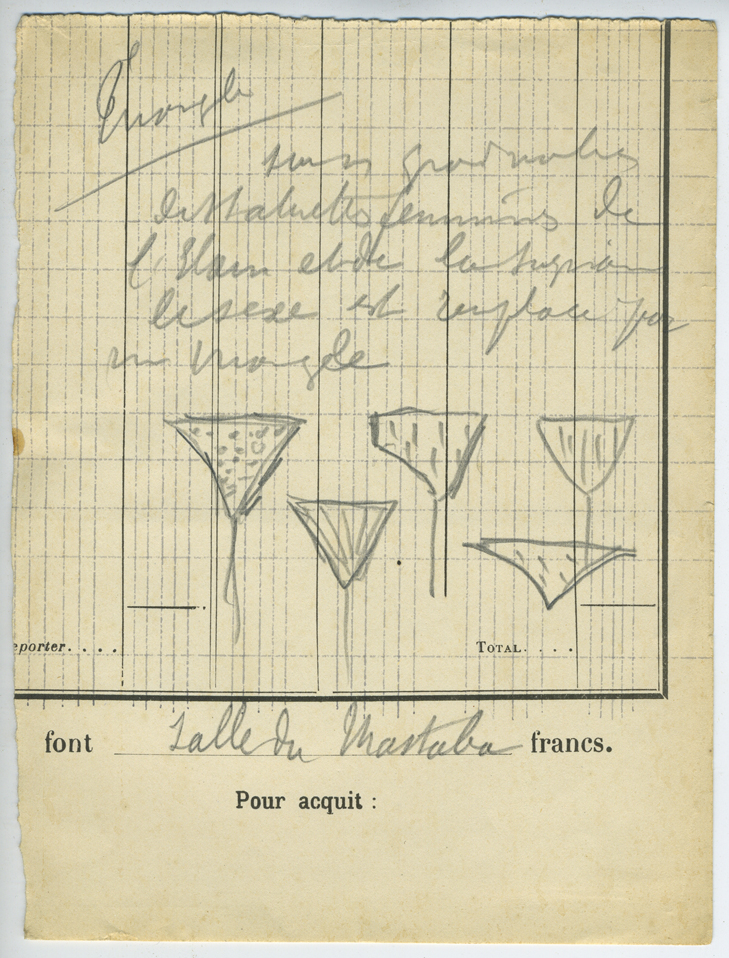 Triangle
sur un grand nombre
de statuettes féminines de
l'Elam et de la Susiane
le sexe est remplacé par
un triangle
eporter. . . .
TOTAL. . . .
font Salle du Mastaba francs.
Pour acquit :